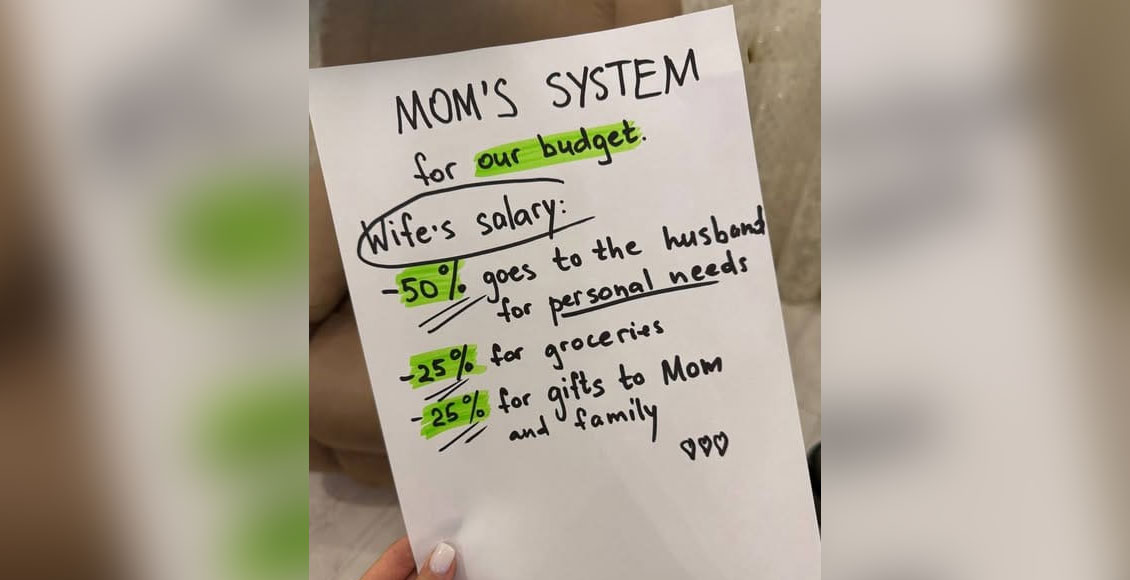 MOM'S SYSTEM
for our budget.
Wife's salary:
-50% goes to the husband
for personal needs
-25% for groceries
-25% for gifts to Mom
and family
♡♡♡